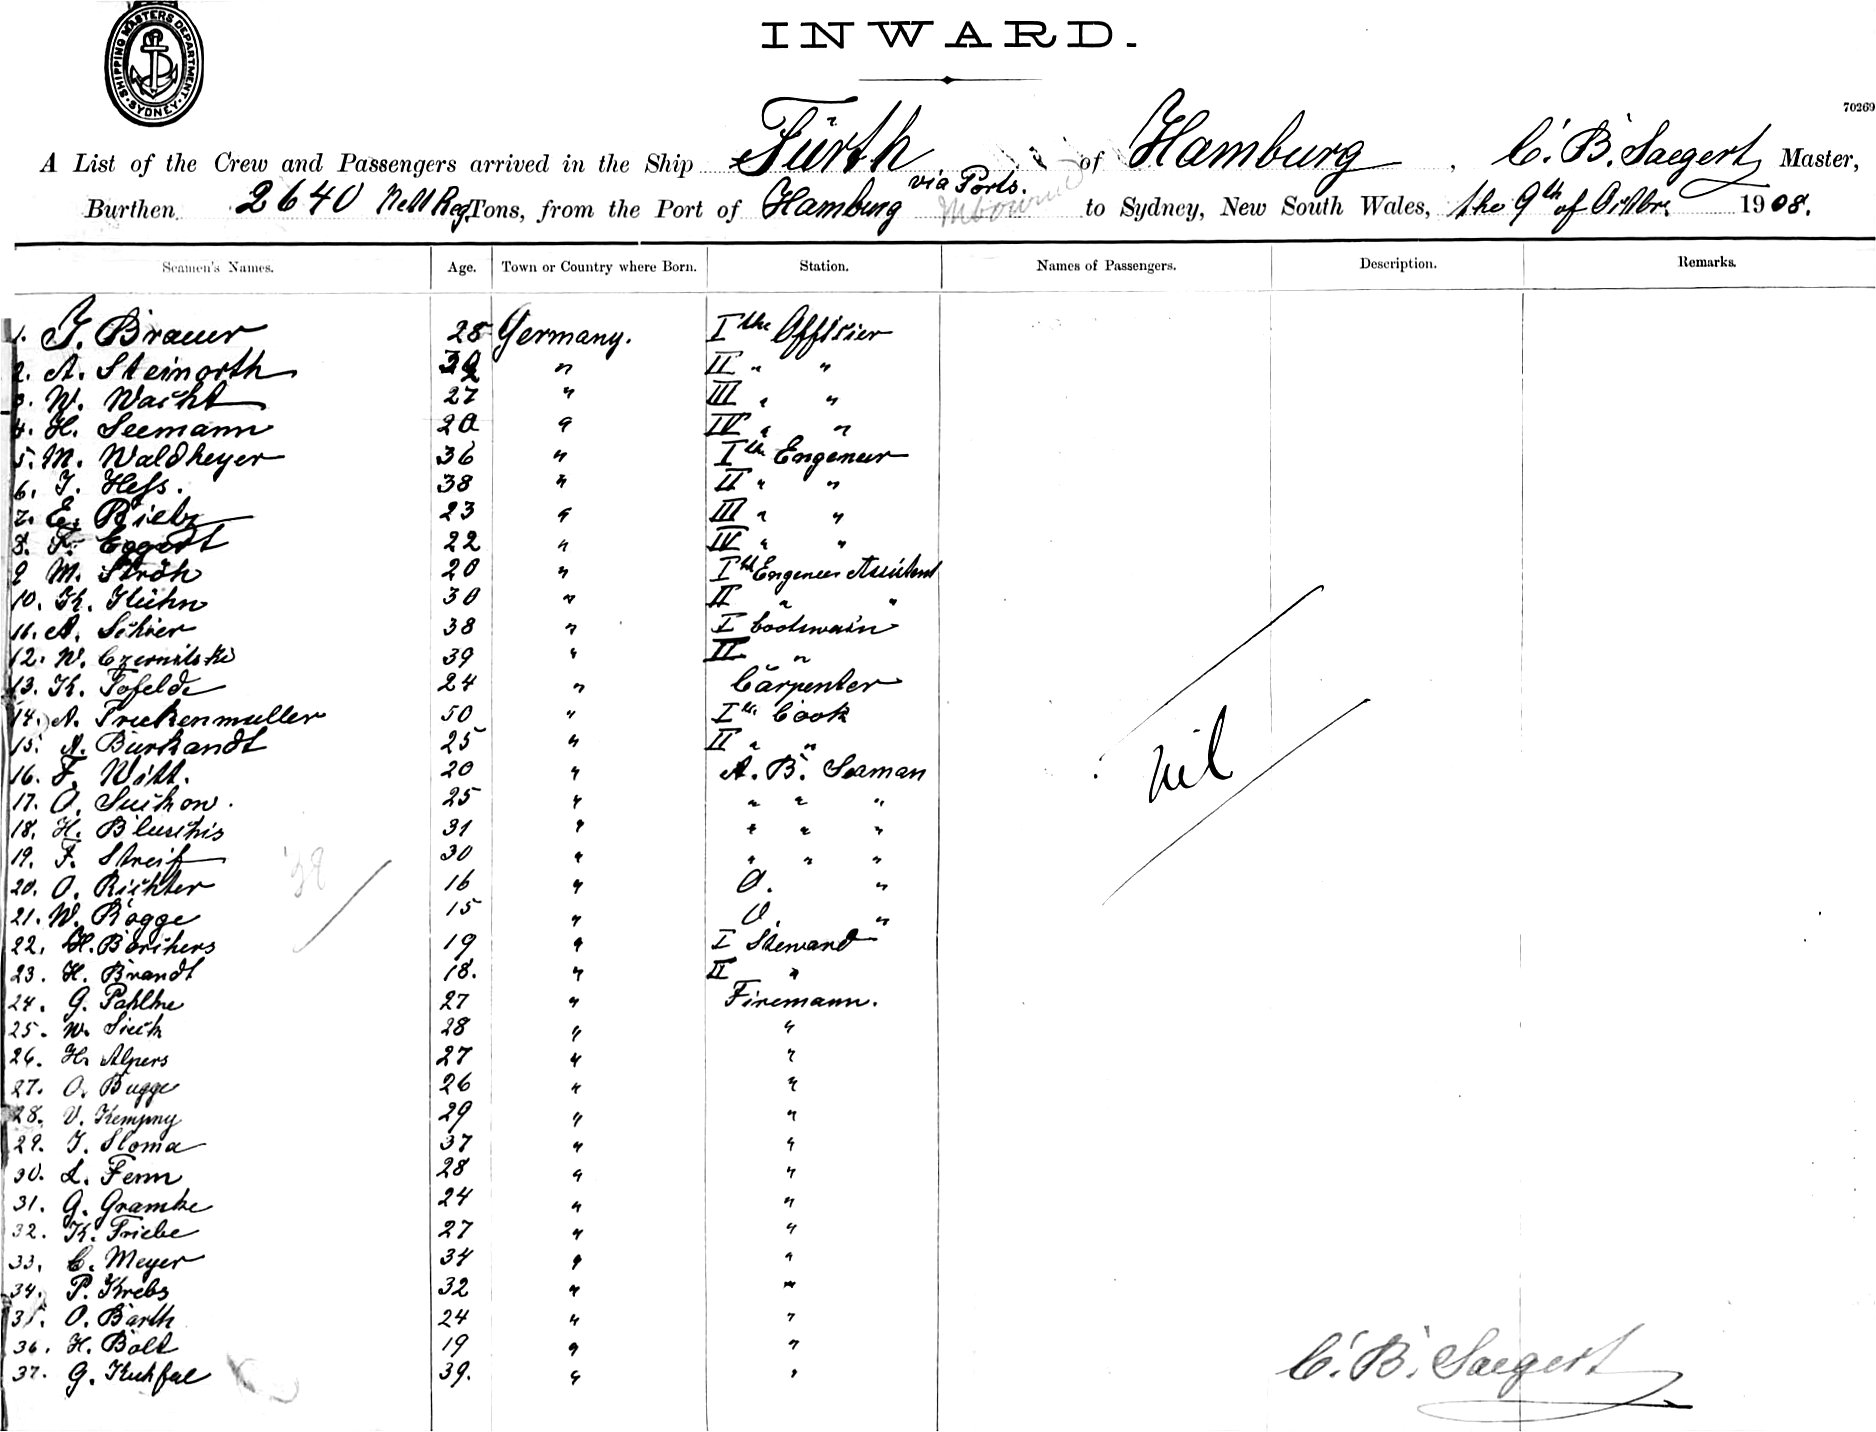 SHIPPING MASTERS DEPARTMENT · SYDNEY ·
INWARD.
70269
A List of the Crew and Passengers arrived in the Ship Fürth of Hamburg, C. B. Saegert Master,
via Ports.
Burthen 2640 Nett Reg. Tons, from the Port of Hamburg to Sydney, New South Wales, the 9th of Octbr. 1908.
Seamen's Names. Age. Town or Country where Born. Station. Names of Passengers. Description. Remarks.
1. J. Brauer 28 Germany. Ithe Offisier
2. A. Steinorth " II " "
3. W. Wacht 27 " III " "
4. H. Seemann 20 " IV " "
5. M. Waldheyer 36 " Ith Engeneur
6. J. Hess. 38 " II " "
7. E. Rielz 23 " III " "
8. F. Eggert 22 " IV " "
9 M. Ströh 20 " Ith Engeneur Assistent
10. K. Kühn 30 " II " "
11. A. Schier 38 " I bootswain
12. W. Czernitski 39 " II "
13. K. Tofelde 24 " Carpenter
14. A. Truckenmuller 50 " Ith Cook
15. A. Burkandt 25 " II " "
16. F. Witt. 20 " A. B. Seaman
17. O. Suckow. 25 " " " "
18. H. Bluschis 31 " " " "
19. F. Streif 30 " " " "
38
20. O. Richter 16 " O. "
21. W. Rogge 15 " O. "
22. H. Borchers 19 " I Steward
23. H. Brandt 18. " II "
24. G. Pahlke 27 " Firemann.
25. W. Sieck 28 " "
26. H. Alpers 27 " "
27. O. Bugge 26 " "
28. V. Kempny 29 " "
29. J. Sloma 37 " "
30. L. Fenn 28 " "
31. G. Gramke 24 " "
32. K. Friebe 27 " "
33. C. Meyer 34 " "
34. P. Krebs 32 " "
35. O. Barth 24 " "
36. H. Bolt 19 " "
37. G. Kuhfal 39. " "
nil
C. B. Saegert